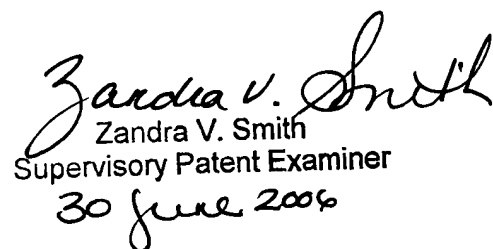 Zandra V. Smith
Zandra V. Smith
Supervisory Patent Examiner
30 June 2006